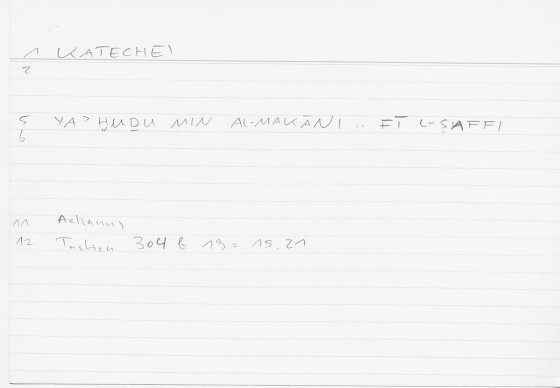 1 KATECHEI
2
5 YAʾḪUḎU MIN AL-MAKĀNI .. FĪ L-ṢAFFI
6
11 Aelianus
12 304 b 19 = 15.21